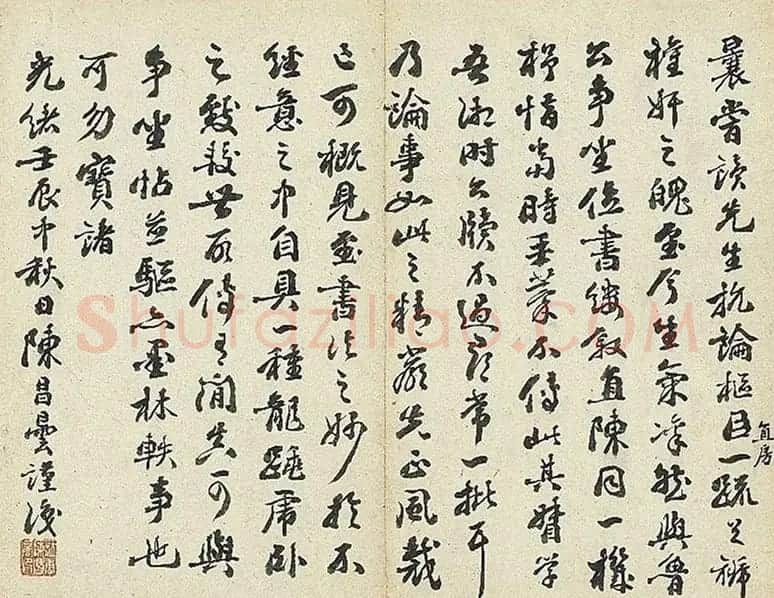 曩嘗讀先生抗論樞臣一疏足褫
直房
權奸之魄至今生氣凜然與魯
公爭坐位書縷敘直陳同一機
杼惜當時手藁不傳此其督學
吾湘時公牘不過尋常一批耳
乃論事如此之精嚴先正風裁
已可概見至書法之妙於不
經意之中自具一種龍虎卧
之所傳可與
爭坐帖並驅亦墨林軼事也
可勿寶諸
光緒壬辰中秋日陳昌曇謹識
Shufaziliao.COM